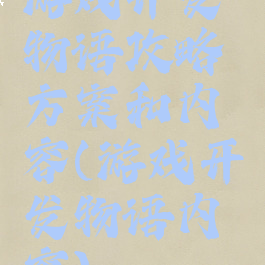 游戏开发
物语攻略
方案和内
容(游戏开
发物语内
容)